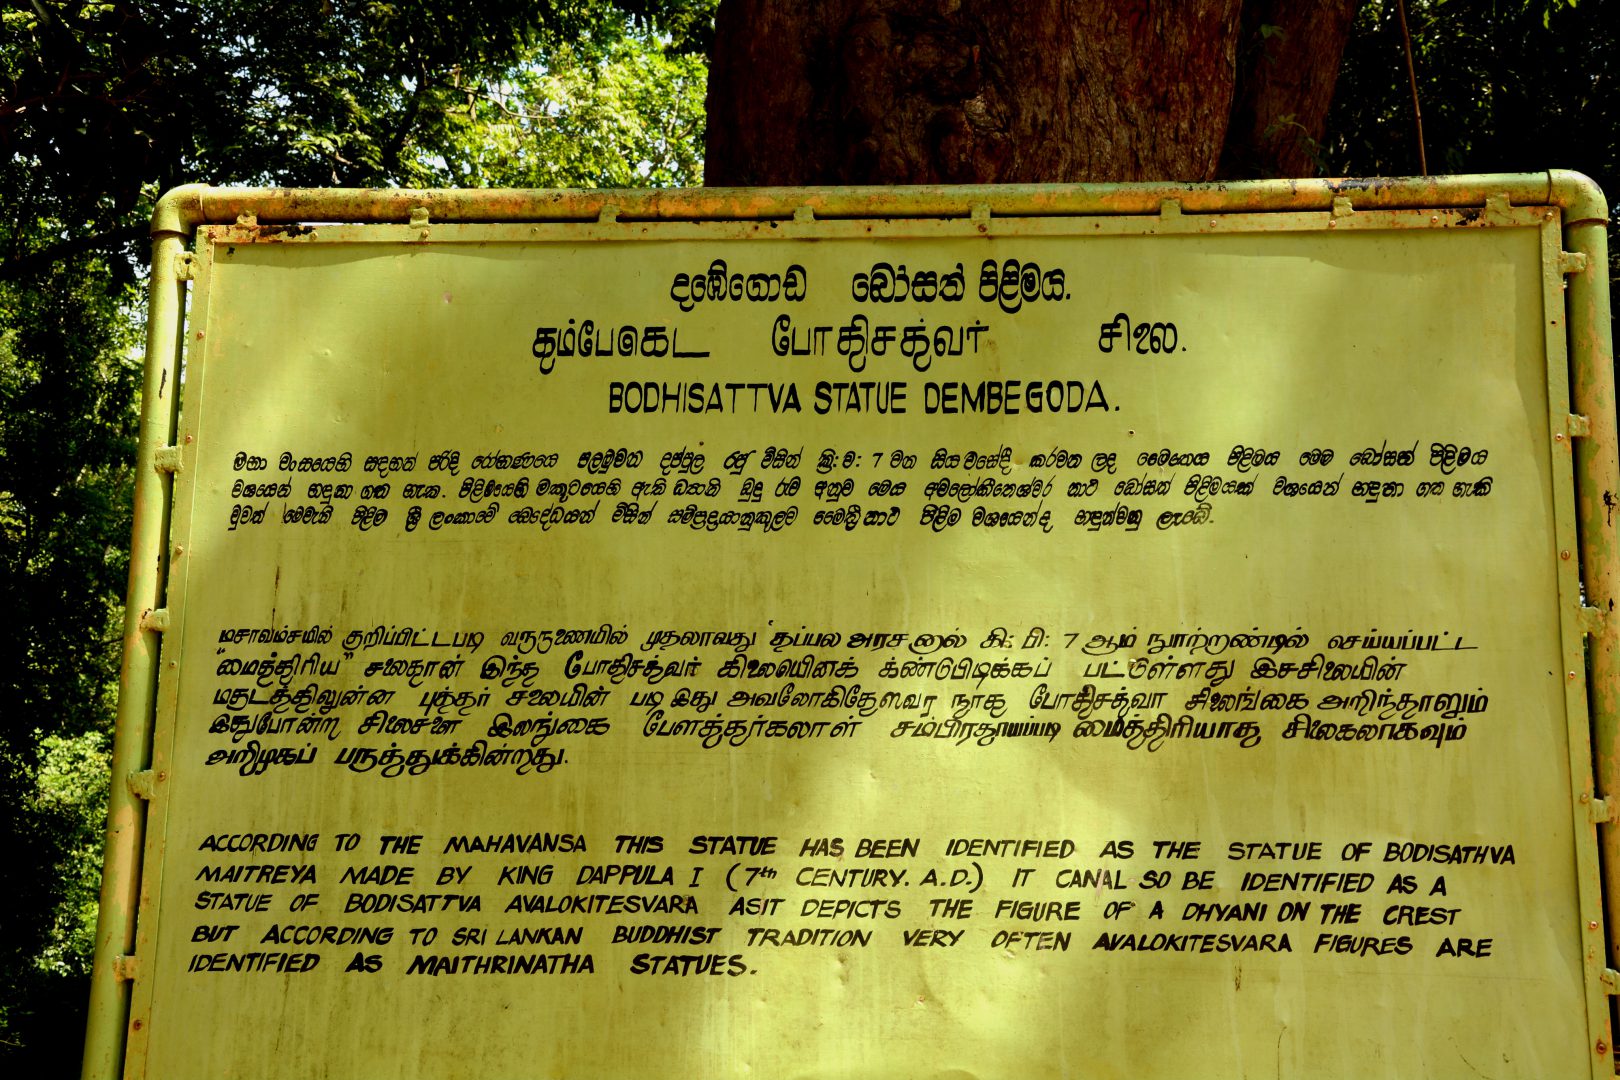 දඹේගොඩ බෝසත් පිළිමය.
தம்பேகெட போதிசத்வர் சிலை.
BODHISATTVA STATUE DEMBEGODA.
මහා වංසයෙහි සඳහන් පරිදි රෝහණයෙ පලමුවන දප්පුල රජු විසින් ක්‍රි: ව: 7 වන සියවසේදී කරවන ලද මෛත්‍රෙය පිළිමය මෙම බෝසත් පිළිමය
වශයෙන් හඳුනා ගත හැක. පිළිමයෙහි මකුටයෙහි ඇති ධ්‍යානි බුදු රුව අනුව මෙය අවලෝකිතෙශ්වර නාථ බෝසත් පිළිමයක් වශයෙන් හඳුනා ගත හැකි
මුවත් මෙවැනි පිළිම ශ්‍රී ලංකාවේ බෞද්ධයන් විසින් සම්ප්‍රදායානුකූලව මෛත්‍රී නාථ පිළිම වශයෙන්ද හඳුන්වනු ලැබේ.
மசாவம்சயில் குறிப்பிட்டபடி வருருணையில் முதலாவது தப்பல அரசனால் கி: பி: 7 ஆம் நூற்றண்டில் செய்யப்பட்ட
"மைத்திரிய" சலைதான் இந்த போதிசத்வர் கிலையெனக் க்ண்டுபிடிக்கப் பட்டுள்ளது இச்சிலையின்
மகுடத்திலுன்ன புத்தர் சலையின் படி இது அவலோகிதேஸ்வர நாத போதிசத்வா சிலைங்கை அறிந்தாலும்
இதுபோன்ற சிலைகளை இலங்கை பேளத்தர்கலாள் சம்பிரதாயப்படி மைத்திரியாத சிலைகலாகவும்
அறிமுகப் பருத்துக்கின்றது.
ACCORDING TO THE MAHAVANSA THIS STATUE HAS BEEN IDENTIFIED AS THE STATUE OF BODISATHVA
MAITREYA MADE BY KING DAPPULA I (7th CENTURY. A.D.) IT CANAL SO BE IDENTIFIED AS A
STATUE OF BODISATTVA AVALOKITESVARA ASIT DEPICTS THE FIGURE OF A DHYANI ON THE CREST
BUT ACCORDING TO SRI LANKAN BUDDHIST TRADITION VERY OFTEN AVALOKITESVARA FIGURES ARE
IDENTIFIED AS MAITHRINATHA STATUES.